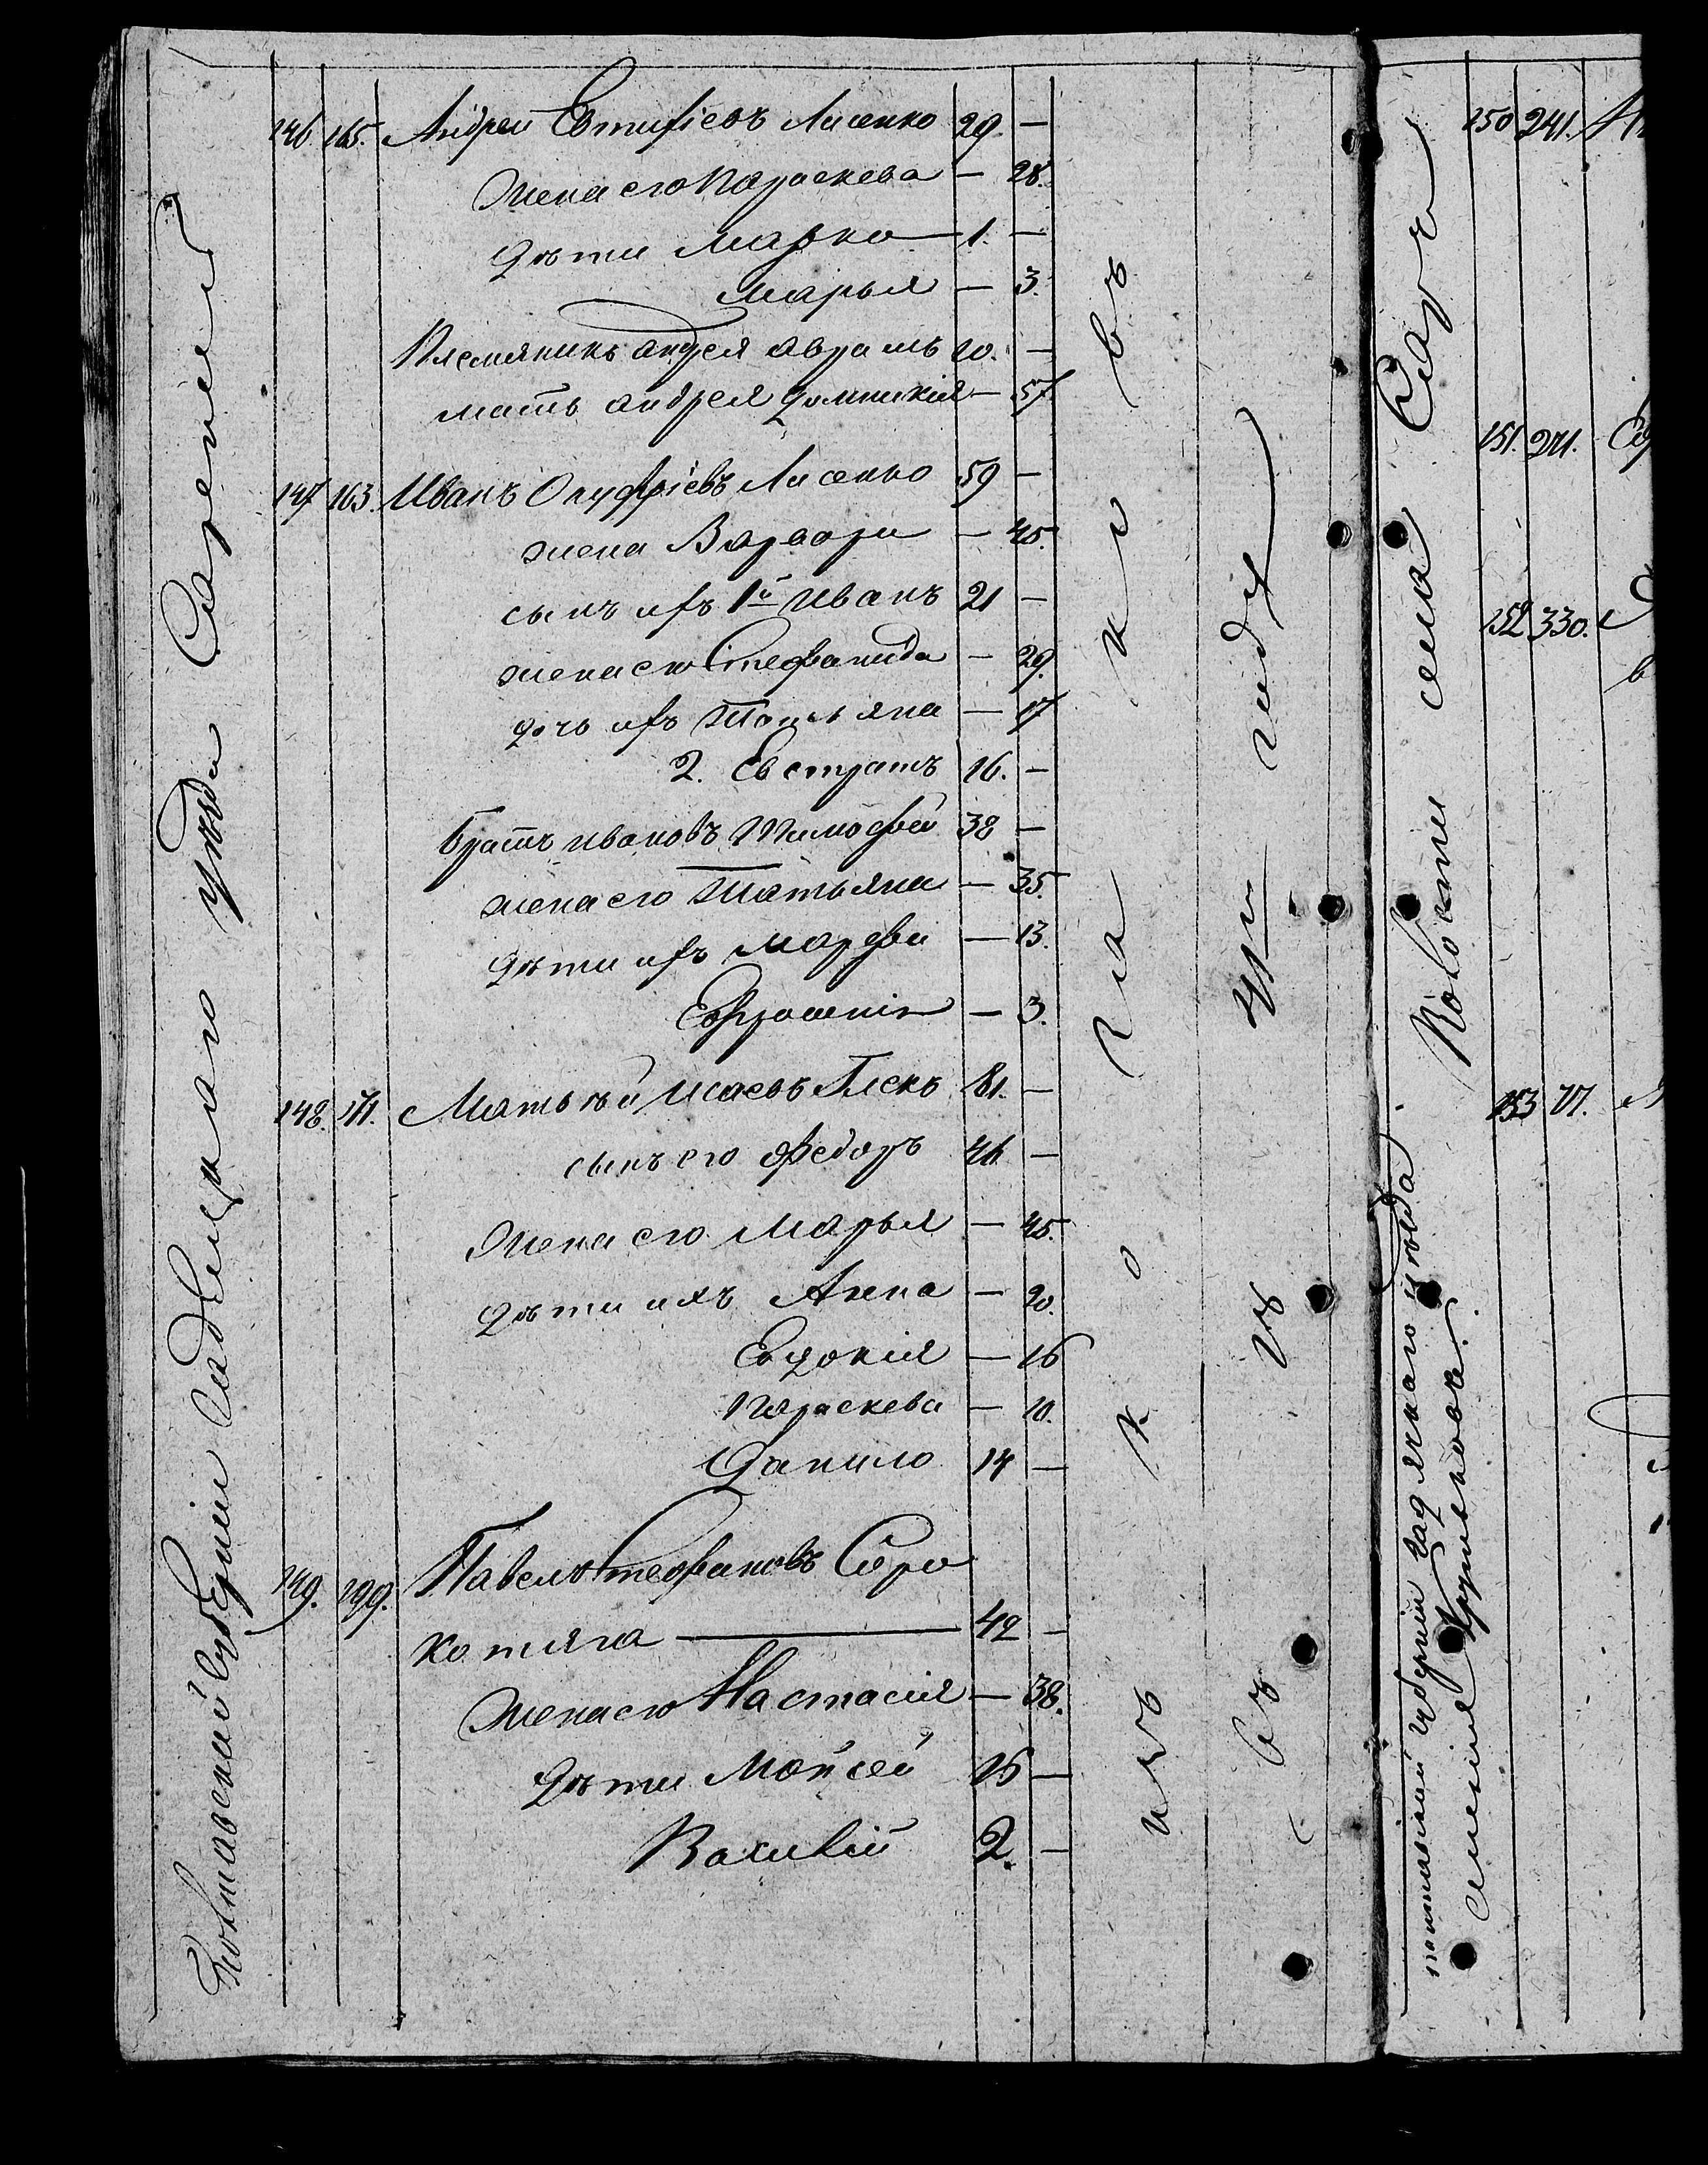 Полтавской Губерніи Гадяцкаго уѣзда Сарской
146 165. Андрей Евтифіевъ Лисенко 29. —
Жена его Параскева — 28.
дѣти Марко — 1. —
Марья — 3.
Племяникъ андрея авраамъ 20. —
мать андрея домникия — 57.
147 163. Иванъ Онуфріевъ Лисенко 59 —
жена Варвара — 45.
сынъ ихъ 1й Иванъ 21 —
жена его Стефанида — 29.
дочь ихъ Татьяна — 17
2. Евстратъ 16. —
Братъ ивановъ Тимофей 38 —
жена его Татьяна — 35.
дѣти ихъ Марфа — 13.
Ефросинія — 3.
148. 171. Матьвѣй Исаевъ 81. —
сынъ его Федоръ 46 —
Жена его Марья — 45.
дѣти ихъ Анна — 20.
Евдокия — 16
Параскева — 10.
Данило 14 —
149. 199. Павелъ Стефановъ Соро
котяга — 42 —
Жена его Настасия — 38.
дѣти Мойсей 16 —
Василій 2. —
изъ ко за ко въ
въ
полтавской губерніи гадячкаго уѣзда Волости села Сара
имѣния
150 241.
151. 271.
152 330.
153 77.